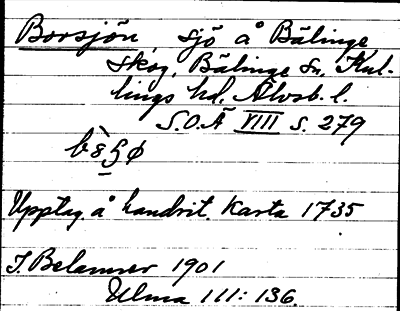 Borsjön, sjö å Bälinge
skog, Bälinge sn, Kul-
lings hd, Älvsb. l.
S.O.Ä VIII s. 279
Upptag. å handrit. Karta 1735
J. Belamner 1901
Ulma 111: 136.